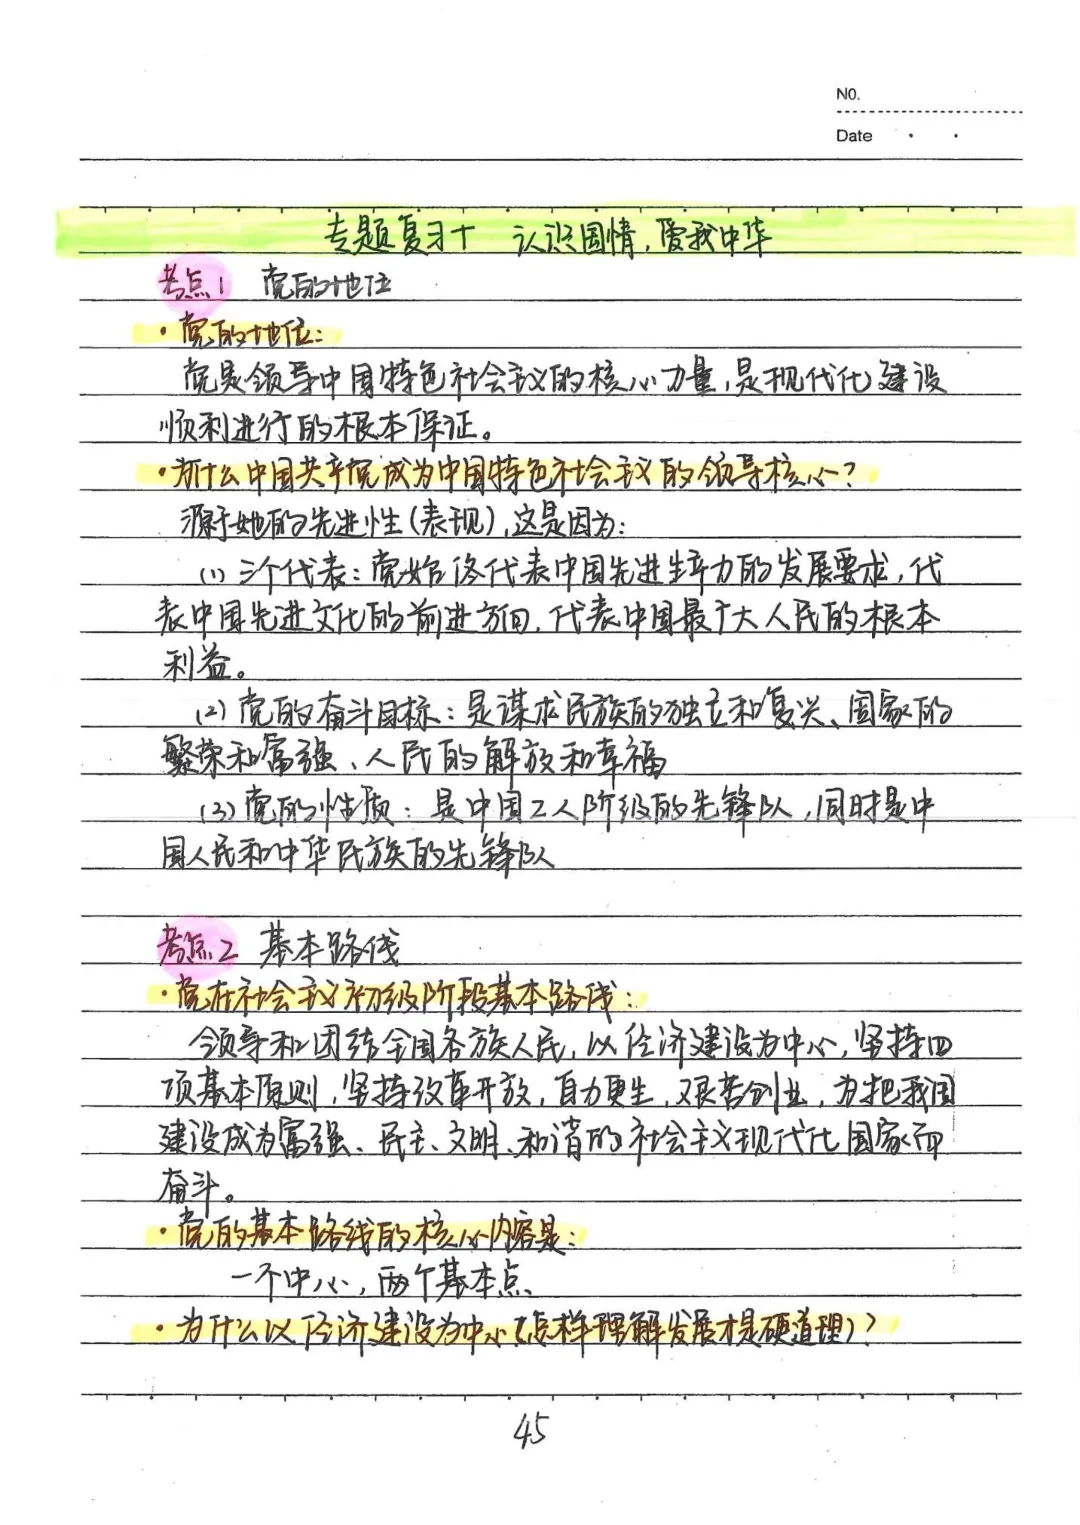 NO.
Date
专题复习十 认识国情,爱我中华
考点1 党的地位
·党的地位:
党是领导中国特色社会主义的核心力量,是现代化建设
顺利进行的根本保证。
·为什么中国共产党成为中国特色社会主义的领导核心?
源于她的先进性(表现),这是因为:
(1)三个代表:党始终代表中国先进生产力的发展要求,代
表中国先进文化的前进方向,代表中国最广大人民的根本
利益。
(2)党的奋斗目标:是谋求民族的独立和复兴、国家的
繁荣和富强、人民的解放和幸福
(3)党的性质:是中国工人阶级的先锋队,同时是中
国人民和中华民族的先锋队
考点2 基本路线
·党在社会主义初级阶段基本路线:
领导和团结全国各族人民,以经济建设为中心,坚持四
项基本原则,坚持改革开放,自力更生,艰苦创业,为把我国
建设成为富强、民主、文明、和谐的社会主义现代化国家而
奋斗。
·党的基本路线的核心内容是:
一个中心,两个基本点
·为什么以经济建设为中心(怎样理解发展才是硬道理)?
45